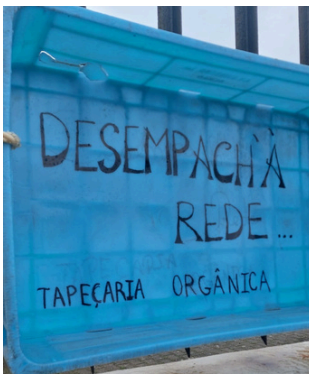 DESEMPACH'À
REDE...
TAPEÇARIA ORGÂNICA